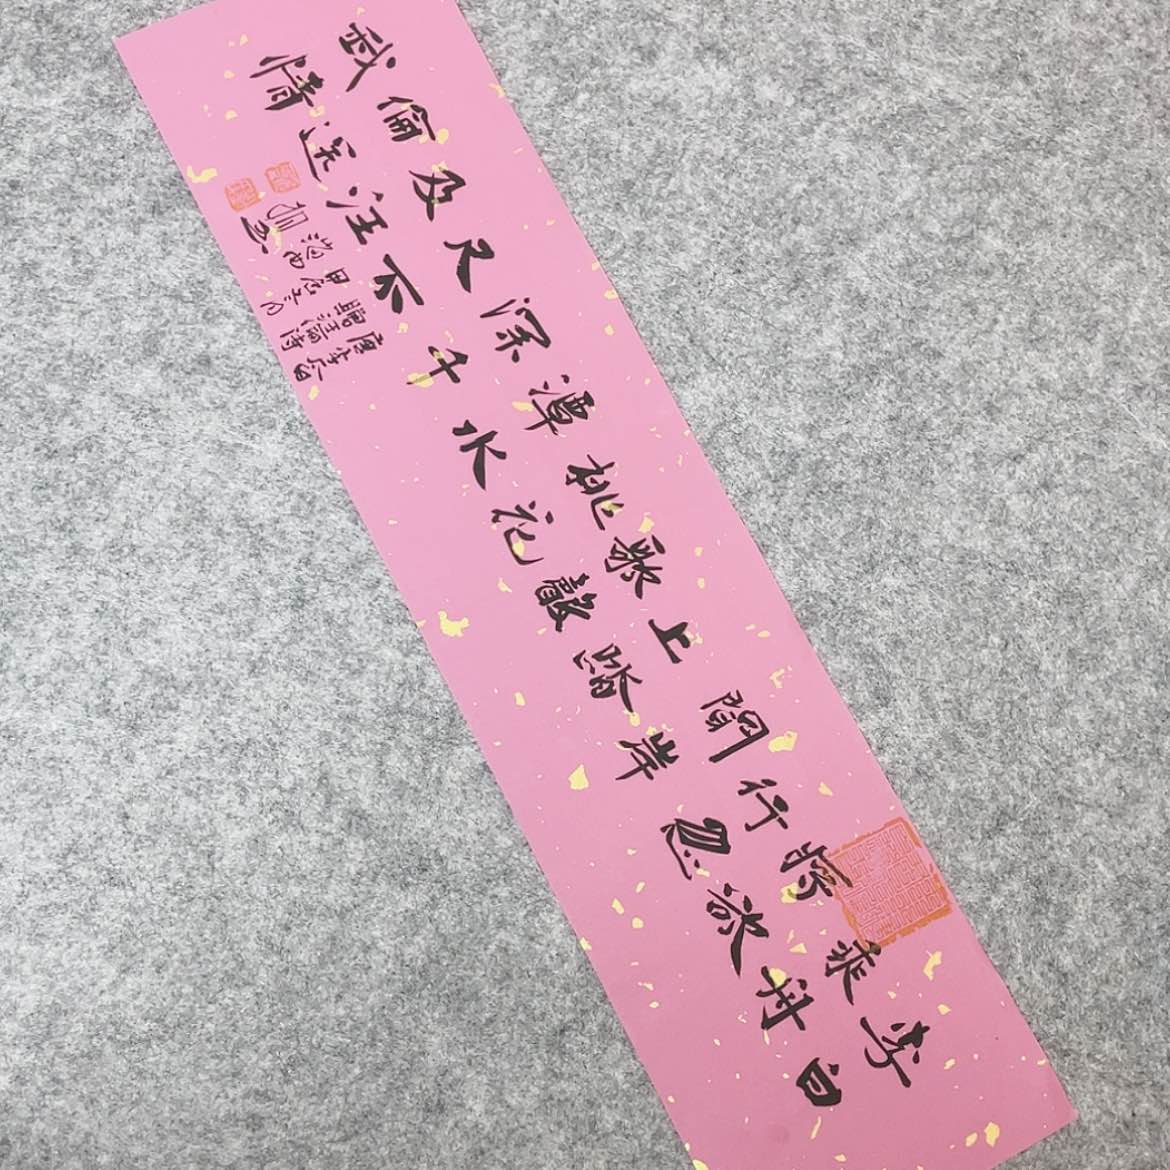 李白
乘舟
將欲
行忽
聞岸
上踏
歌聲
桃花
潭水
深千
尺不
及汪
倫送
我情
唐李太白
贈汪倫詩
甲辰冬月